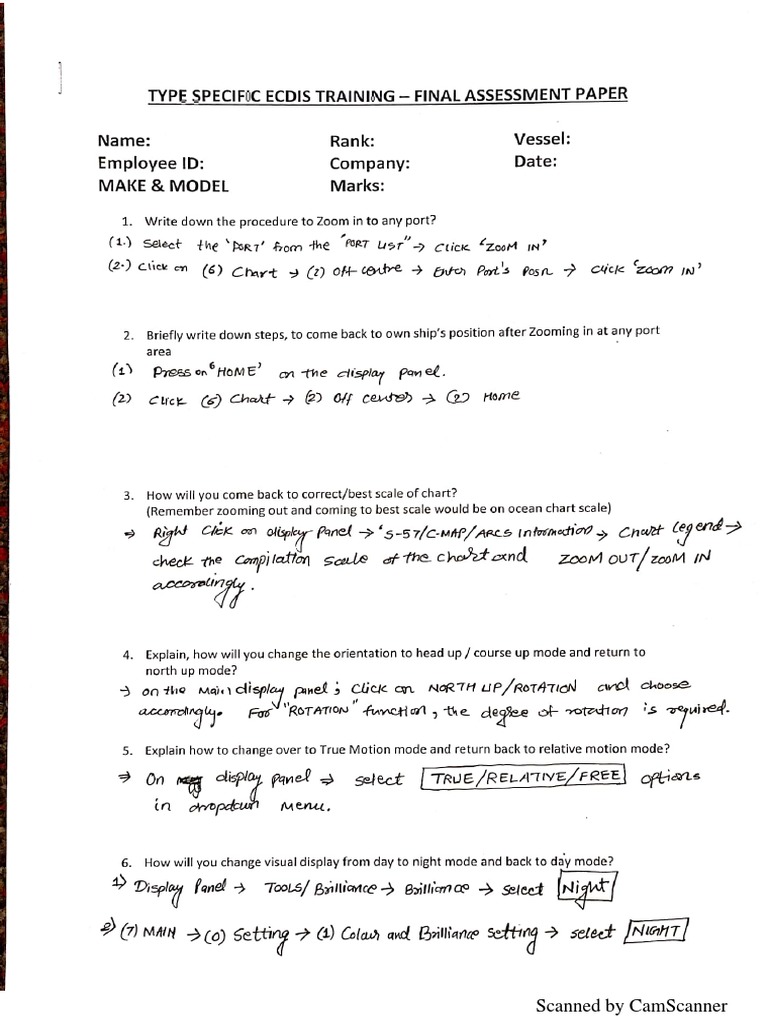 TYPE SPECIFIC ECDIS TRAINING – FINAL ASSESSMENT PAPER
Name: Rank: Vessel:
Employee ID: Company: Date:
MAKE & MODEL Marks:
1. Write down the procedure to Zoom in to any port?
(1.) Select the 'PORT' from the "PORT LIST" → Click 'ZOOM IN'
(2.) Click on (6) Chart → (2) Off-centre → Enter Port's Posn → Click 'ZOOM IN'
2. Briefly write down steps, to come back to own ship's position after Zooming in at any port
area
(1) Press on 'HOME' on the display panel.
(2) Click (6) Chart → (2) Off center → (2) Home
3. How will you come back to correct/best scale of chart?
(Remember zooming out and coming to best scale would be on ocean chart scale)
⇒ Right Click on display Panel → 'S-57/C-MAP/ARCS Information → Chart legend →
check the compilation scale of the chart and ZOOM OUT/ZOOM IN
accordingly.
4. Explain, how will you change the orientation to head up / course up mode and return to
north up mode?
→ On the Main display panel; Click on NORTH UP/ROTATION and choose
accordingly. For "ROTATION" function, the degree of rotation is required.
5. Explain how to change over to True Motion mode and return back to relative motion mode?
⇒ On display panel ⇒ select TRUE/RELATIVE/FREE options
in dropdown menu.
6. How will you change visual display from day to night mode and back to day mode?
1) Display Panel → TOOLS/Brilliance → Brilliance → select Night
2) (7) MAIN → (0) Setting → (1) Colour and Brilliance setting → select NIGHT
Scanned by CamScanner